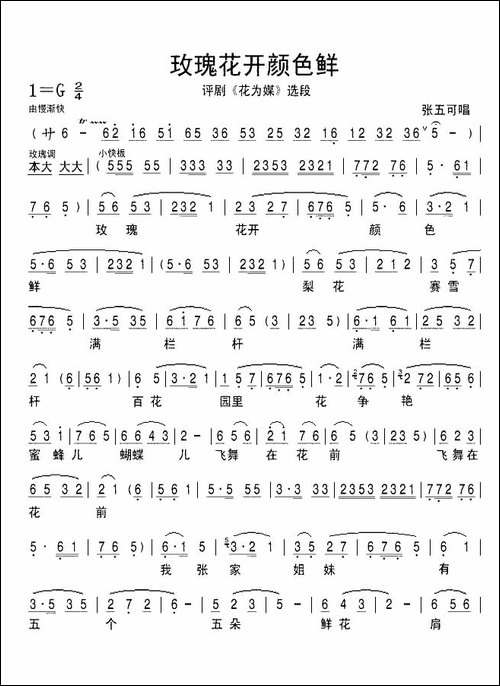 玫瑰花开颜色鲜
1=G 2/4
评剧《花为媒》选段
由慢渐快
张五可唱
(サ 6 - 62 16 51 65 36 53 25 32 16 12 32 36 5 - )
玫瑰调 小快板
本大 大大 | (555 55 | 333 33 | 2353 2321 | 772 76 | 5 · 61 |
76 5 · ) | 56 53 | 232 1 | 23 27 | 676 5 | 5 · 6 | 3·2 1 |
玫 瑰 花开 颜 色
5·6 53 | 232 1 | (5·6 53 | 232 1) | 56 53 | 232 1 | 3 5 7 |
鲜 梨 花 赛雪
676 5 | 3·5 35 | 6 1 76 | 5 6 (3 | 235 5) | 6·1 65 | 3·5 61 |
满 栏 杆 满 栏
2 1 (6 | 56 1) | 6 5 | 3·2 1 | 5 7 | 676 5 | 1·3 2 | 276 5 | 56 5 |
杆 百花 园里 花 争 艳
53 1 | 76 5 | 66 43 | 2 - | 65 6 | 21 76 | 6 5 (3 | 235 5) | 5 23 |
蜜蜂儿 蝴蝶 儿 飞舞 在 花 前 飞舞在
65 32 | 2 1 (6 | 56 1) | 5·5 55 | 3·3 33 | 2353 2321 | 772 76 |
花 前
5 · 61 | 76 5 · ) | 6·1 5 | 3·2 1 | 35 27 | 676 5 | 5 · 1 |
我 张 家 姐 妹 有
3·5 35 | 2 7 | 6 - | 2·5 32 | 1 61 5 | 6 43 | 2 - | 6 56 |
五 个 五朵 鲜花 肩